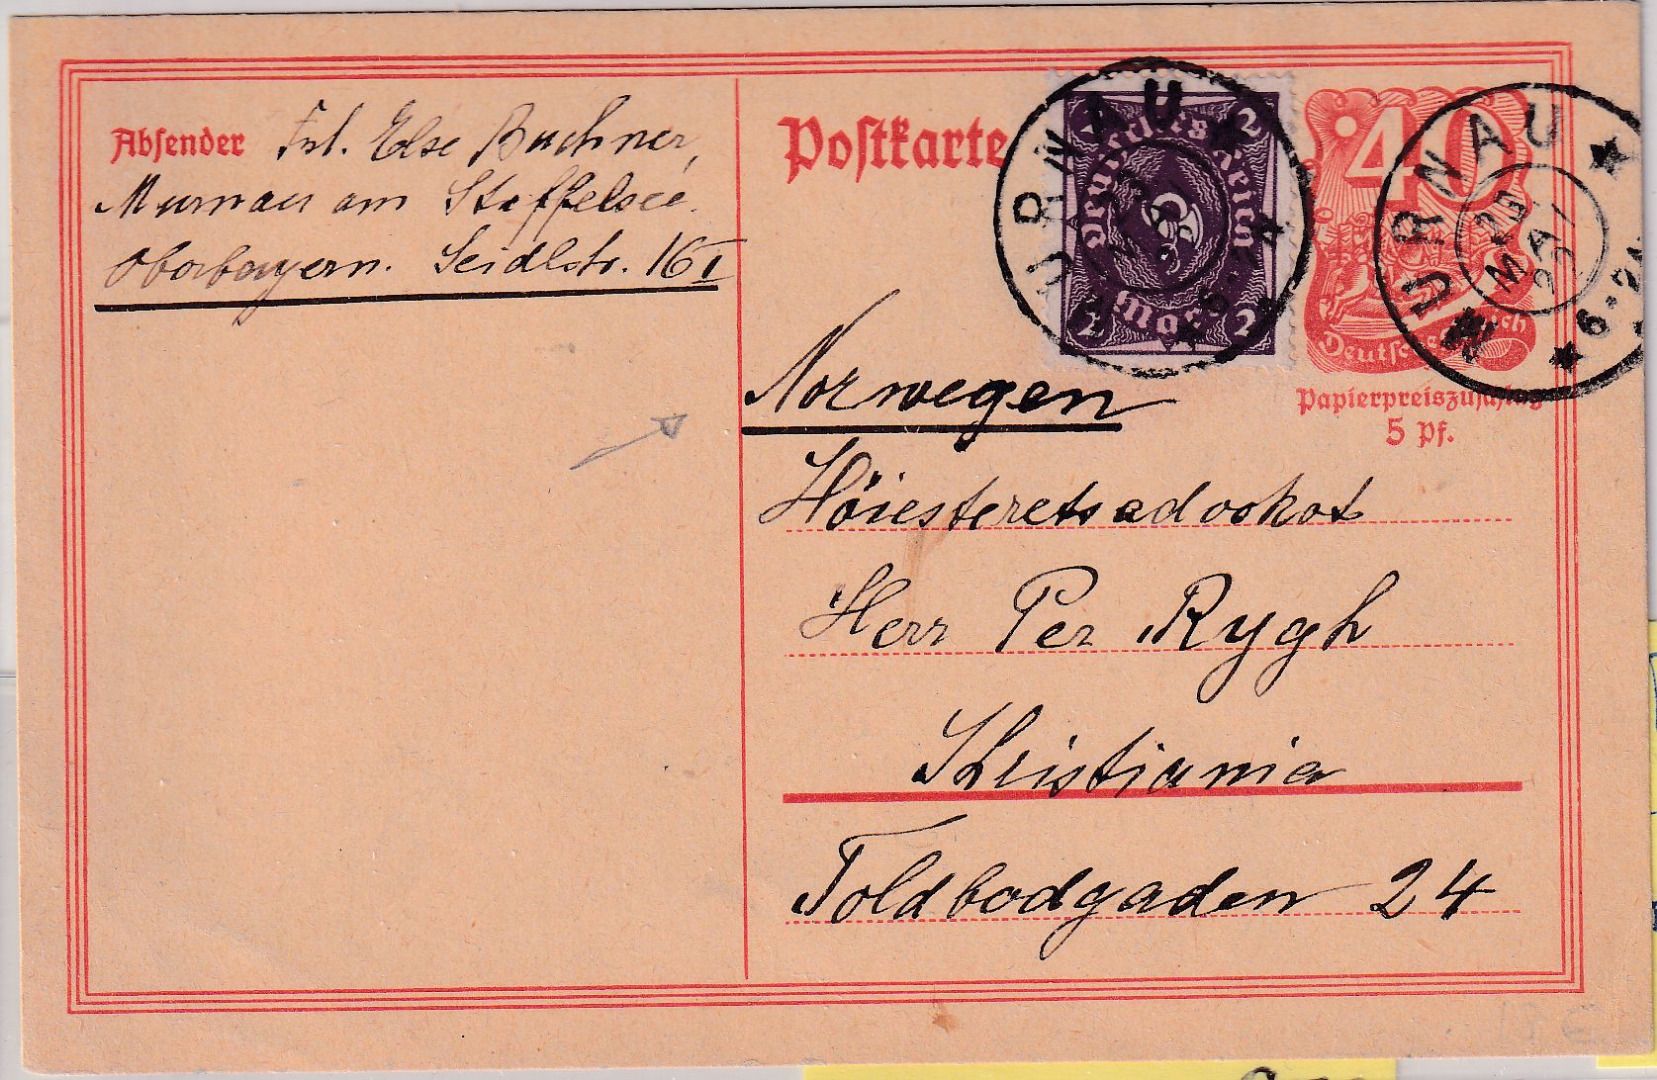 Absender Frl. Else Buchner,
Murnau am Staffelsee.
Oberbayern. Seidlstr. 16 I
Postkarte
2 Deutsches Reich 2
2 Mark 2
MURNAU
23 MAI 22
6-7 N
40
Deutsches Reich
MURNAU
23 MAI 22
Papierpreiszuschlag
5 Pf.
Norwegen
Höiesteretsadvokat
Herr Per Rygh
Khristiania
Toldbodgaden 24